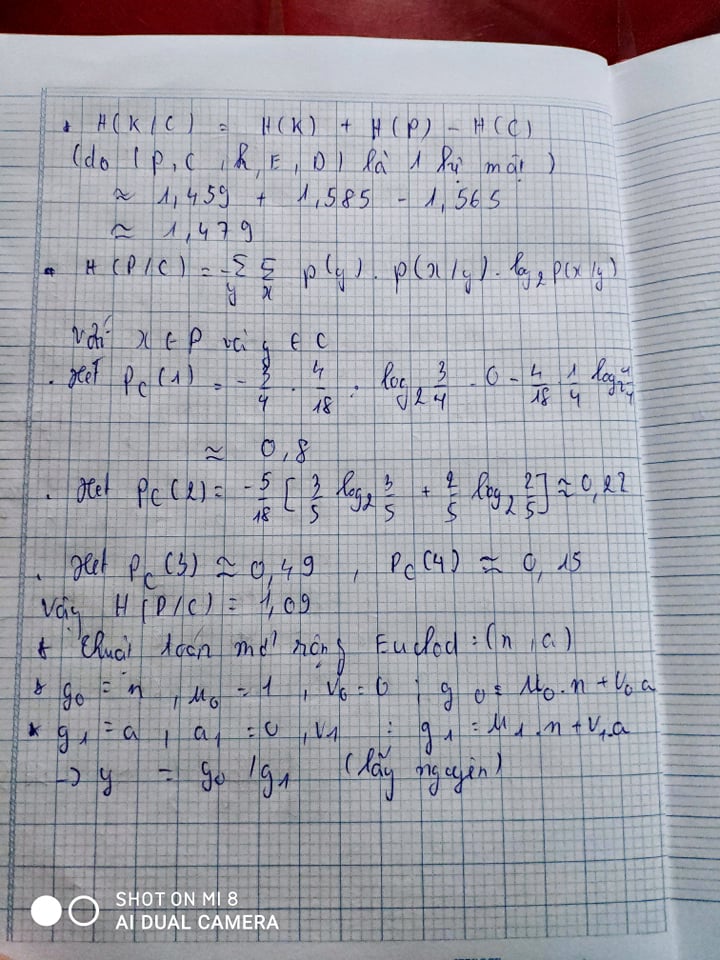 * H(K/C) = H(K) + H(P) - H(C)
(do (P, C, K, E, D) là 1 hệ mật)
≈ 1,459 + 1,585 - 1,565
≈ 1,479
* H(P/C) = -Σ_y Σ_x p(y) . p(x/y) . log₂ p(x/y)
Với x ∈ P và y ∈ C
. Xét P_C(1) = -3/4 . 4/18 . log₂ 3/4 - 0 - 4/18 . 1/4 log₂ 1/4
≈ 0,8
. Xét P_C(2) = -5/18 [3/5 log₂ 3/5 + 2/5 log₂ 2/5] ≈ 0,27
. Xét P_C(3) ≈ 0,49 , P_C(4) ≈ 0,15
Vậy H(P/C) = 1,09
* Thuật toán mở rộng Euclod : (n, a)
* g₀ = n , u₀ = 1 , v₀ = 0 ; g₀ = u₀.n + v₀ a
* g₁ = a , a₁ = 0 , v₁ : g₁ = u₁.n + v₁.a
→ y = g₀ / g₁ (lấy nguyên)
SHOT ON MI 8
AI DUAL CAMERA